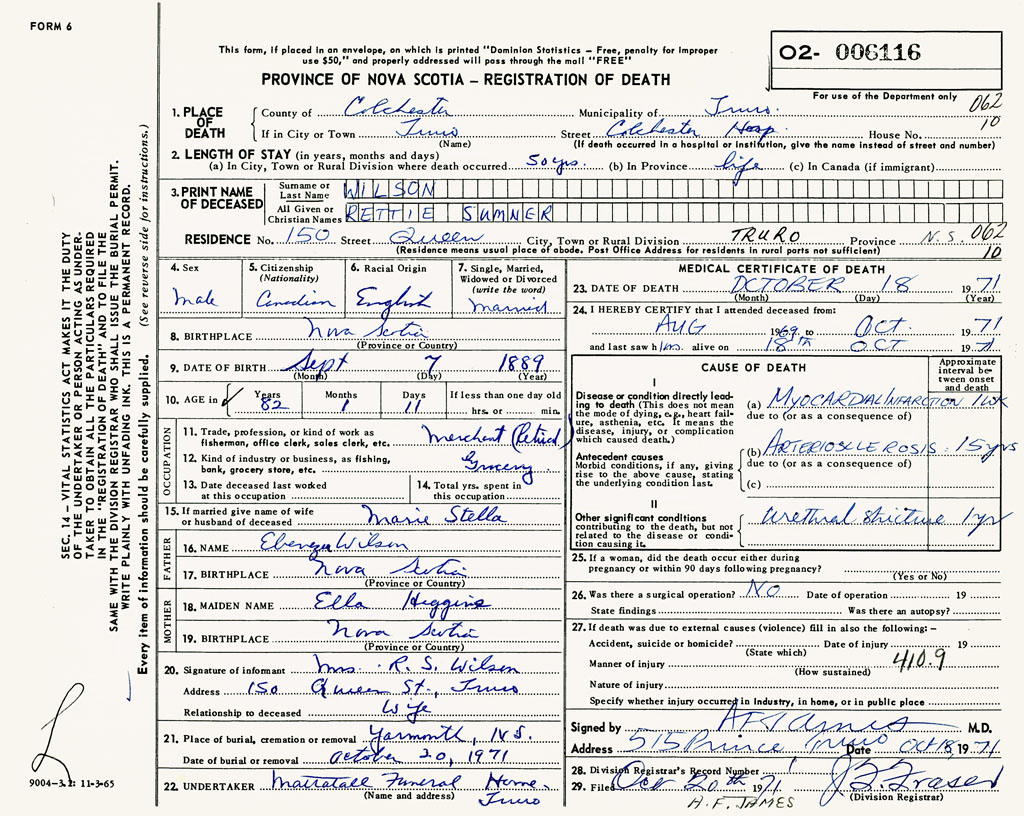 FORM 6
This form, if placed in an envelope, on which is printed "Dominion Statistics – Free, penalty for improper
use $50," and properly addressed will pass through the mail "FREE"
02- 006116
PROVINCE OF NOVA SCOTIA – REGISTRATION OF DEATH
For use of the Department only
062
10
1. PLACE OF DEATH
County of Colchester Municipality of Truro
If in City or Town Truro Street Colchester Hosp. House No.
(Name) (If death occurred in a hospital or institution, give the name instead of street and number)
2. LENGTH OF STAY (in years, months and days)
(a) In City, Town or Rural Division where death occurred 50 yrs. (b) In Province life (c) In Canada (if immigrant)
3. PRINT NAME OF DECEASED
Surname or Last Name WILSON
All Given or Christian Names RETTIE SUMNER
RESIDENCE No. 150 Street Queen City, Town or Rural Division TRURO Province N.S. 062
(Residence means usual place of abode. Post Office Address for residents in rural parts not sufficient) 10
4. Sex
Male
5. Citizenship
(Nationality)
Canadian
6. Racial Origin
English
7. Single, Married,
Widowed or Divorced
(write the word)
Married
8. BIRTHPLACE Nova Scotia
(Province or Country)
9. DATE OF BIRTH Sept 7 1889
(Month) (Day) (Year)
10. AGE in Years 82 Months 1 Days 11 If less than one day old
hrs. or min.
OCCUPATION
11. Trade, profession, or kind of work as
fisherman, office clerk, sales clerk, etc. Merchant (Retired)
12. Kind of industry or business, as fishing,
bank, grocery store, etc. Grocery
13. Date deceased last worked
at this occupation
14. Total yrs. spent in
this occupation
15. If married give name of wife
or husband of deceased Marie Stella
FATHER
16. NAME Ebenezer Wilson
17. BIRTHPLACE Nova Scotia
(Province or Country)
MOTHER
18. MAIDEN NAME Ella Higgins
19. BIRTHPLACE Nova Scotia
(Province or Country)
20. Signature of informant Mrs. R. S. Wilson
Address 150 Queen St., Truro
Relationship to deceased Wife
21. Place of burial, cremation or removal Yarmouth, N.S.
Date of burial or removal October 20, 1971
22. UNDERTAKER Mattatall Funeral Home
(Name and address) Truro
MEDICAL CERTIFICATE OF DEATH
23. DATE OF DEATH OCTOBER 18 1971
(Month) (Day) (Year)
24. I HEREBY CERTIFY that I attended deceased from:
AUG 1969 to OCT. 1971
and last saw him alive on 18th OCT 1971
CAUSE OF DEATH
Approximate
interval be-
tween onset
and death
I
Disease or condition directly lead-
ing to death (This does not mean
the mode of dying, e.g., heart fail-
ure, asthenia, etc. It means the
disease, injury, or complication
which caused death.)
(a) MYOCARDIAL INFARCTION 1 WK
due to (or as a consequence of)
Antecedent causes
Morbid conditions, if any, giving
rise to the above cause, stating
the underlying condition last.
(b) ARTERIOSCLEROSIS 15 yrs
due to (or as a consequence of)
(c)
II
Other significant conditions
contributing to the death, but not
related to the disease or condi-
tion causing it.
Urethral stricture 1 yr
25. If a woman, did the death occur either during
pregnancy or within 90 days following pregnancy?
(Yes or No)
26. Was there a surgical operation? NO Date of operation 19
State findings Was there an autopsy?
27. If death was due to external causes (violence) fill in also the following: –
Accident, suicide or homicide? Date of injury 19
(State which)
410.9
Manner of injury
(How sustained)
Nature of injury
Specify whether injury occurred in industry, in home, or in public place
Signed by A F James M.D.
Address 515 Prince Truro Date Oct 18, 1971
28. Division Registrar's Record Number
29. Filed Oct 20th 1971 J. B. Fraser
(Division Registrar)
A.F. JAMES
SEC. 14 – VITAL STATISTICS ACT MAKES IT THE DUTY
OF THE UNDERTAKER OR PERSON ACTING AS UNDER-
TAKER TO OBTAIN ALL THE PARTICULARS REQUIRED
IN THE "REGISTRATION OF DEATH" AND TO FILE THE
SAME WITH THE DIVISION REGISTRAR WHO SHALL ISSUE THE BURIAL PERMIT.
WRITE PLAINLY WITH UNFADING INK. THIS IS A PERMANENT RECORD.
Every item of information should be carefully supplied. (See reverse side for instructions.)
9004–3.2: 11-3-65